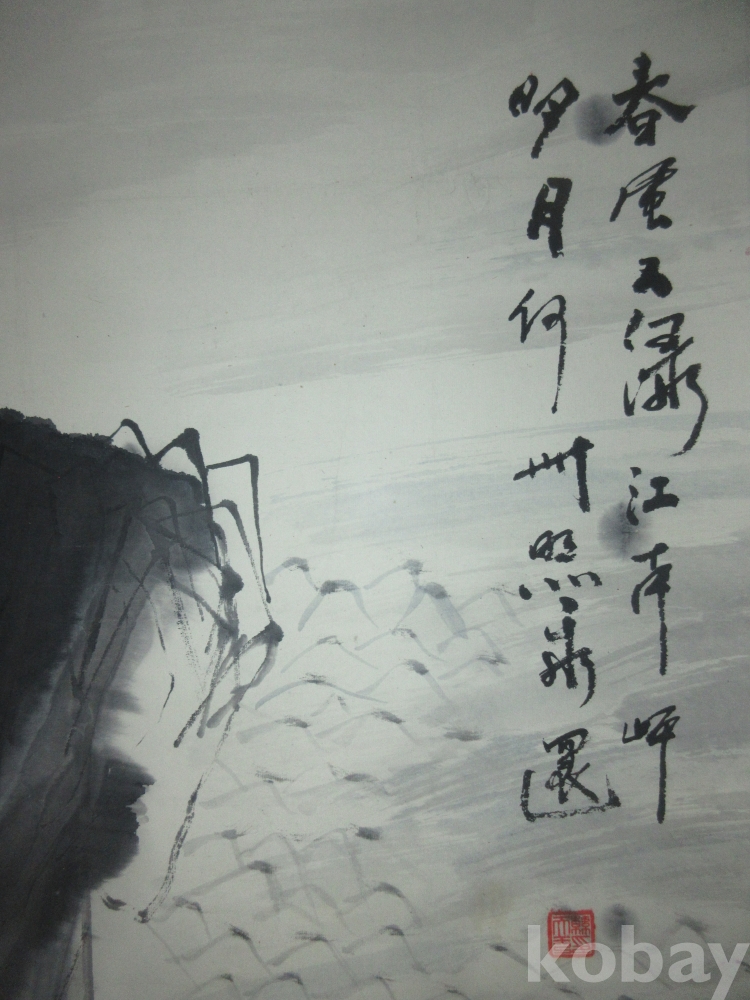 春風又綠江南岸
明月何時照我還
kobay